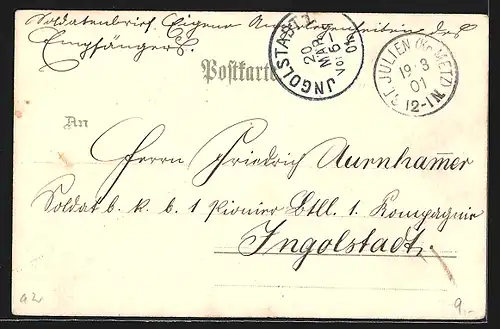 Soldatenbrief. Eigene Angelegenheiten des
Empfängers.
Postkarte
INGOLSTADT 1
20
MAR
VOR 6-
01
ST. JULIEN (Kr. METZ)
19.3
01
12-1N.
An
Herrn Friedrich Aurnham̄er
Soldat b. k. b. 1 Pionier Btll. 1. Kompagnie
Ingolstadt.
9.-